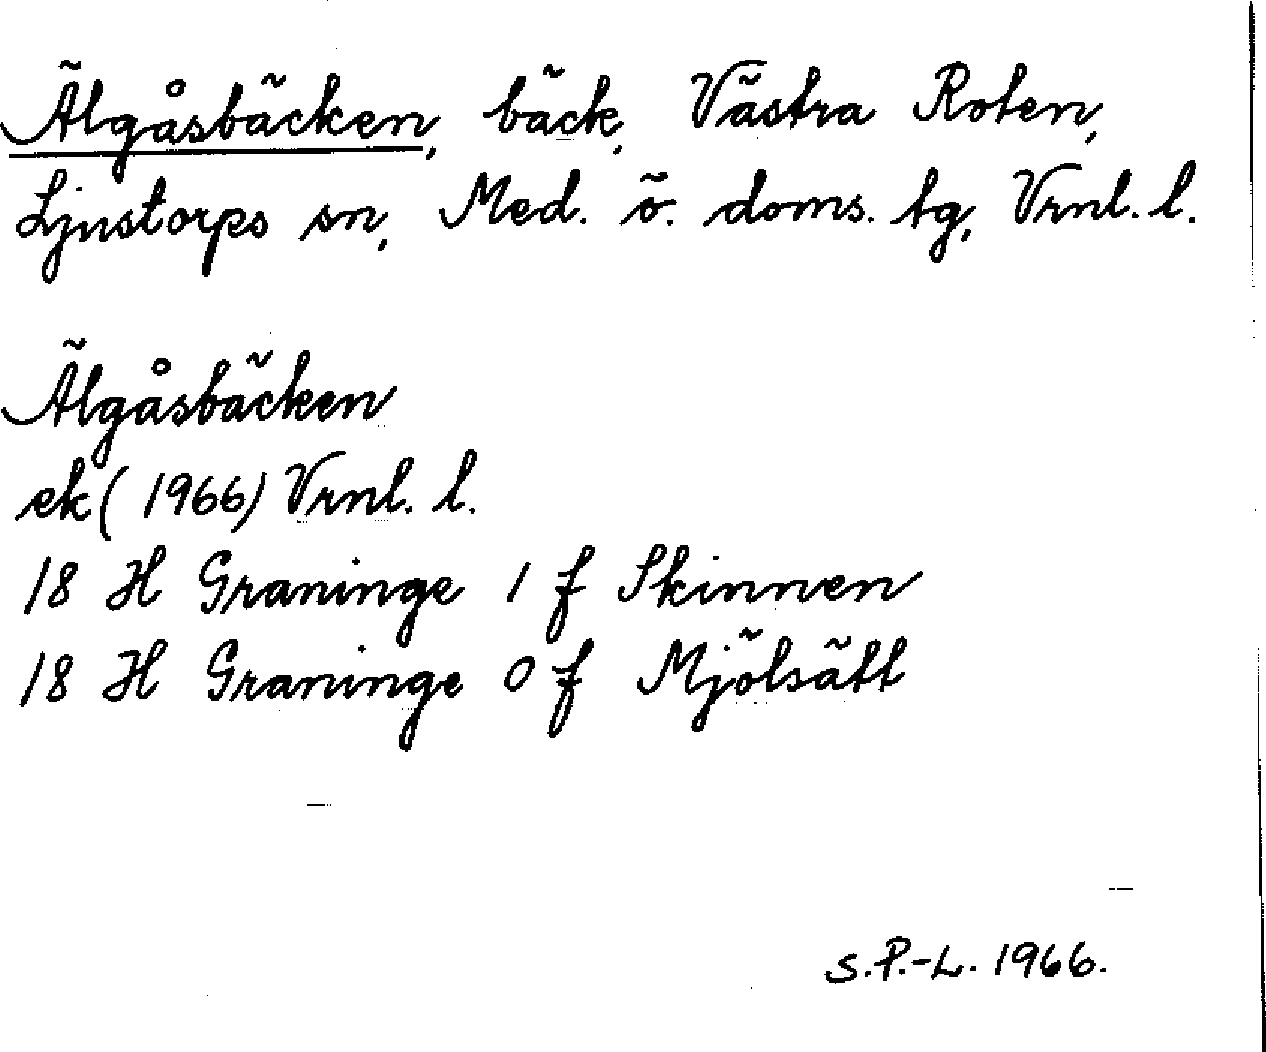 Älgåsbäcken, bäck, Västra Roten,
Ljustorps sn, Med. ö. doms. tg, Vrnl. l.
Älgåsbäcken
ek (1966) Vrnl. l.
18 H Graninge 1 f Skinnen
18 H Graninge 0 f Mjölsätt
S.P.-L. 1966.